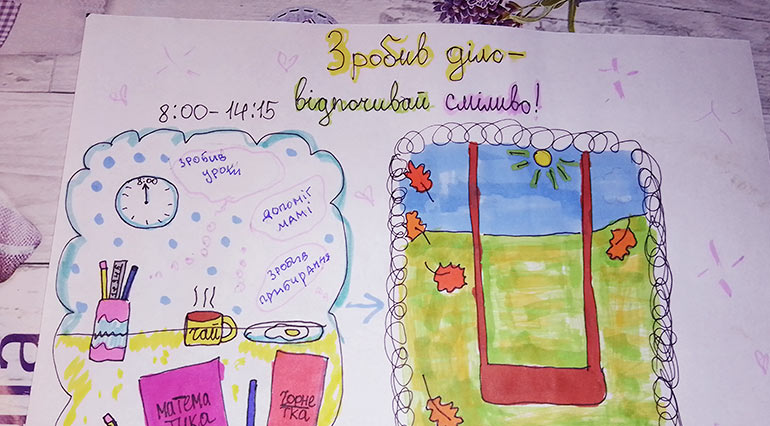 Зробив діло-
відпочивай сміливо!
8:00-14:15
8:00
Зробив
уроки
допоміг
мамі
Зробив
прибирання
ЧАЙ
МАТЕМА
ТИКА
ЧОРНЕ
ТКА